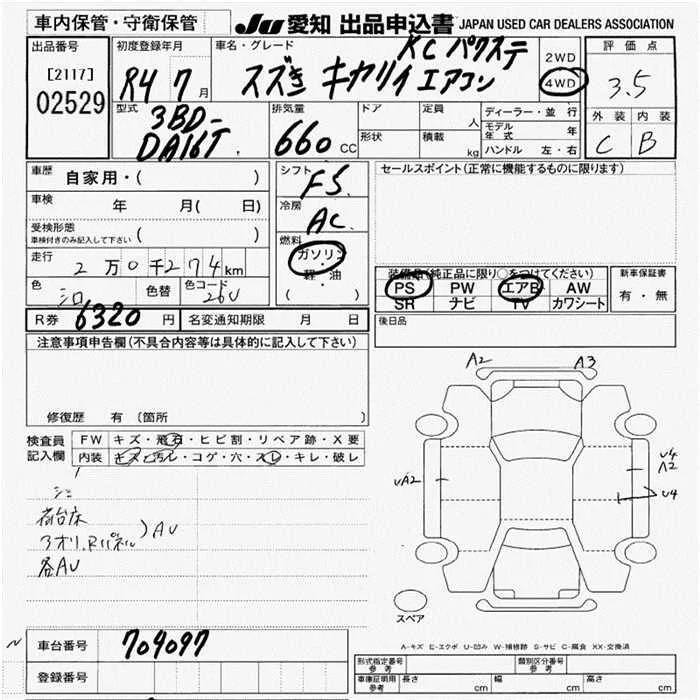 車内保管・守衛保管
JU 愛知 出品申込書 JAPAN USED CAR DEALERS ASSOCIATION
出品番号
[2117]
02529
初度登録年月
R4 7月
車名・グレード
KC パワステ
スズき キャリイ エアコン
2WD
4WD
評価点
3.5
外装 内装
C B
型式
3BD-
DA16T
排気量
660 CC
ドア
形状
定員 人
積載 kg
ディーラー・並行
モデル年式 年
ハンドル 左・右
車歴 自家用・( )
車検 年 月( 日)
受検形態
車検付きのみ記入して下さい ( )
走行 2万0千274km
色 シロ 色替 色コード 26U
シフト F5
冷房 AC
燃料
ガソリン
・
軽・油
( )
セールスポイント(正常に機能するものに限ります)
装備品(純正品に限り○をつけてください)
PS PW エアB AW
SR ナビ TV カワシート
新車保証書
有・無
R券 6320 円 名変通知期限 月 日
後日品
注意事項申告欄(不具合内容等は具体的に記入して下さい)
修復歴 有 〔箇所 〕
検査員記入欄
FW キズ・飛石・ヒビ割・リペア跡・X要
内装 キズ・汚レ・コゲ・穴・スレ・キレ・破レ
荷台床
アオリ.Rパネル )AU
各AU
A2 A3
UA2
U4
A2
U4
スペア
A-キズ E-エクボ U-凹み W-補修跡 S-サビ C-腐食 XX-交換済
車台番号 704097
登録番号
形式指定番号 参考
類別区分番号 参考
車庫証明用 参考
長さ cm 幅 cm 高さ cm